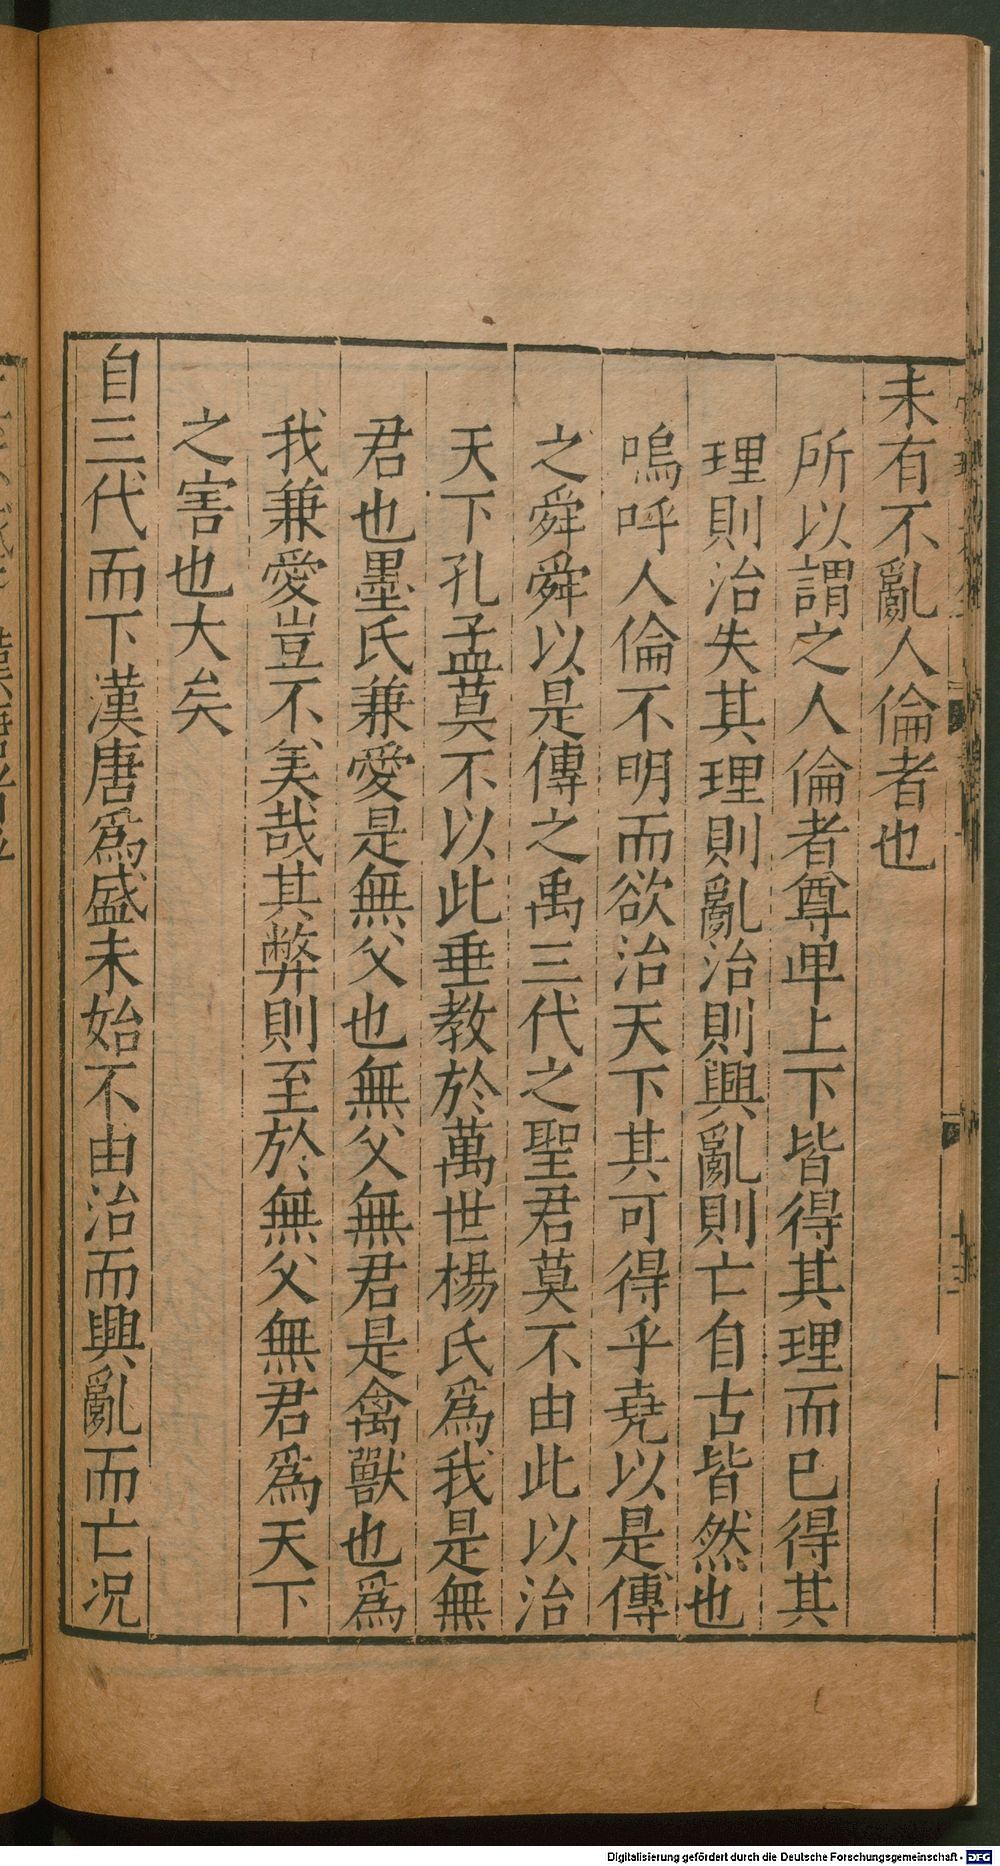 未有不亂人倫者也
所以謂之人倫者尊卑上下皆得其理而已得其
理則治失其理則亂治則興亂則亡自古皆然也
嗚呼人倫不明而欲治天下其可得乎堯以是傳
之舜舜以是傳之禹三代之聖君莫不由此以治
天下孔孟莫不以此垂教於萬世楊氏爲我是無
君也墨氏兼愛是無父也無父無君是禽獸也爲
我兼愛豈不美哉其弊則至於無父無君爲天下
之害也大矣
自三代而下漢唐爲盛未始不由治而興亂而亡况
Digitalisierung gefördert durch die Deutsche Forschungsgemeinschaft - DFG